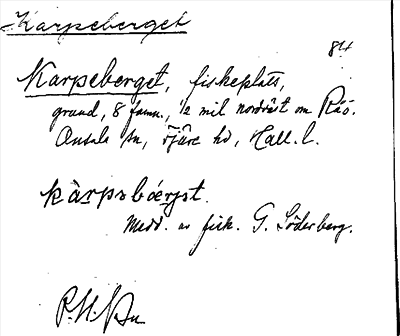 Karpeberget
84
Karpeberget, fiskeplats,
grund, 8 famn., ½ mil nordväst om Råö.
Onsala sn, Fjäre hd, Hall. l.
kàrpəbærjət.
Medd. av fisk. G. Söderberg.